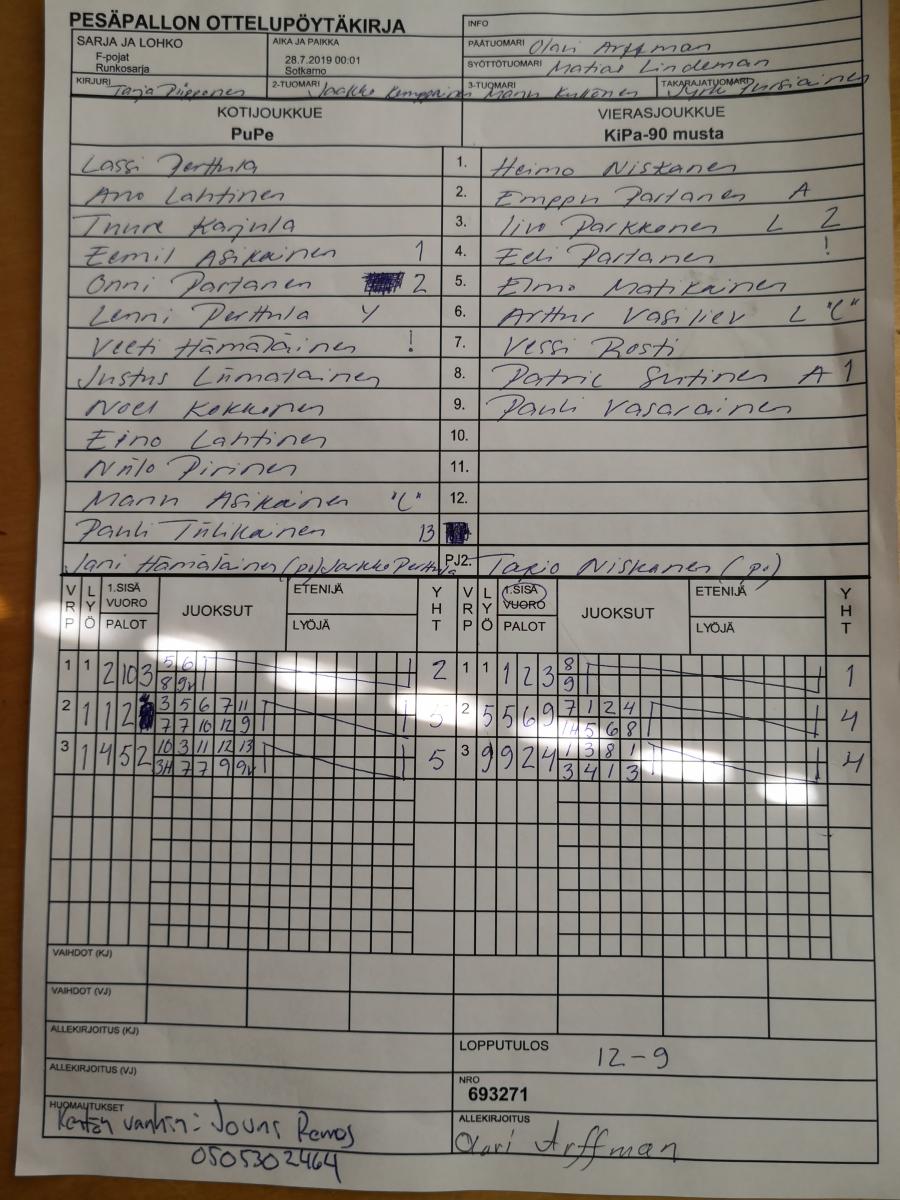 PESÄPALLON OTTELUPÖYTÄKIRJA
INFO
SARJA JA LOHKO
F-pojat
Runkosarja
AIKA JA PAIKKA
28.7.2019 00:01
Sotkamo
PÄÄTUOMARI Olavi Arffman
SYÖTTÖTUOMARI Matias Lindeman
KIRJURI Tarja Piipponen
2-TUOMARI Jaakko Kemppainen
3-TUOMARI
TAKARAJATUOMARI
KOTIJOUKKUE
PuPe
VIERASJOUKKUE
KiPa-90 musta
Lassi Perttula 1. Heimo Niskanen
Arvo Lahtinen 2. Emppu Partanen A
Tuure Karjula 3. Iivo Parkkonen L 2
Eemil Asikainen 1 4. Eeli Partanen !
Onni Partanen 2 5. Elmo Matikainen
Lenni Perttula Y 6. Arttur Vasiliev L "C"
Veeti Hämäläinen ! 7. Vessi Rosti
Justus Liimatainen 8. Patric Sutinen A 1
Noel Kokkonen 9. Pauli Vasarainen
Eino Lahtinen 10.
Niilo Pirinen 11.
Manu Asikainen "C" 12.
Pauli Tiilikainen 13
Jani Hämäläinen (pj) Jarkko Perttula PJ2. Tarjo Niskanen (pj)
VRP LYÖ 1.SISÄ VUORO PALOT JUOKSUT ETENIJÄ LYÖJÄ YHT VRP LYÖ 1.SISÄ VUORO PALOT JUOKSUT ETENIJÄ LYÖJÄ YHT
1 1 2 10 3 5 6 2 1 1 1 2 3 8 1
8 9v 9
2 1 1 2 3 5 6 7 11 5 2 5 5 6 9 7 1 2 4 4
7 7 10 12 9 1H 5 6 8
3 1 4 5 2 10 3 11 12 13 5 3 9 9 2 4 1 3 8 1 4
3H 7 7 9 9v 3 4 1 3
VAIHDOT (KJ)
VAIHDOT (VJ)
ALLEKIRJOITUS (KJ)
LOPPUTULOS 12-9
ALLEKIRJOITUS (VJ)
NRO
693271
HUOMAUTUKSET
Kentän vanhin: Jouni Remes
0505302464
ALLEKIRJOITUS
Olavi Arffman